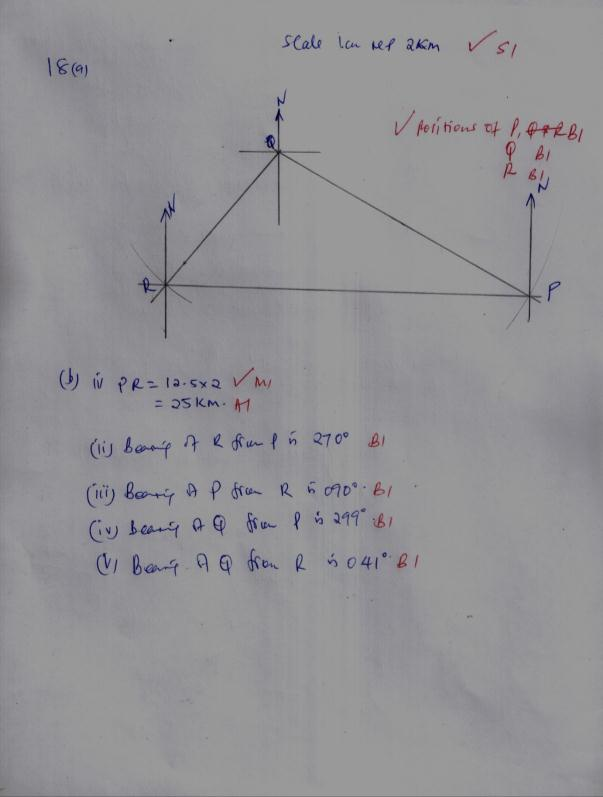 Scale 1cm rep 2Km ✓ S1
18(a)
N
Q
✓ Positions of P, Q & R B1
Q B1
R B1
N
N
R
P
(b) iv PR = 12.5x2 ✓ M1
= 25Km. A1
(ii) Bearing of R from P is 270° B1
(iii) Bearing of P from R is 090°. B1
(iv) Bearing of Q from P is 299° B1
(v) Bearing of Q from R is 041° B1